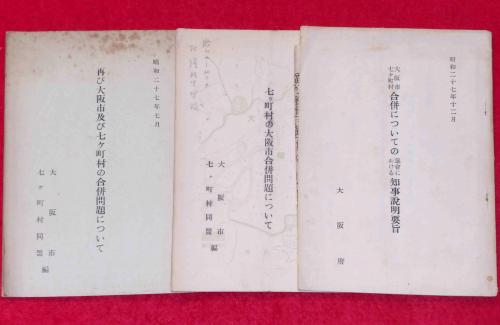 昭和二十七年十二月
大阪市
七ヶ町村
合併についての
議会に
おける
知事説明要旨
大阪府
七ヶ町村の大阪市合併問題について
大阪市
七ヶ町村同盟編
昭和二十七年七月
再び大阪市及び七ケ町村の合併問題について
大阪市
七ケ町村同盟編